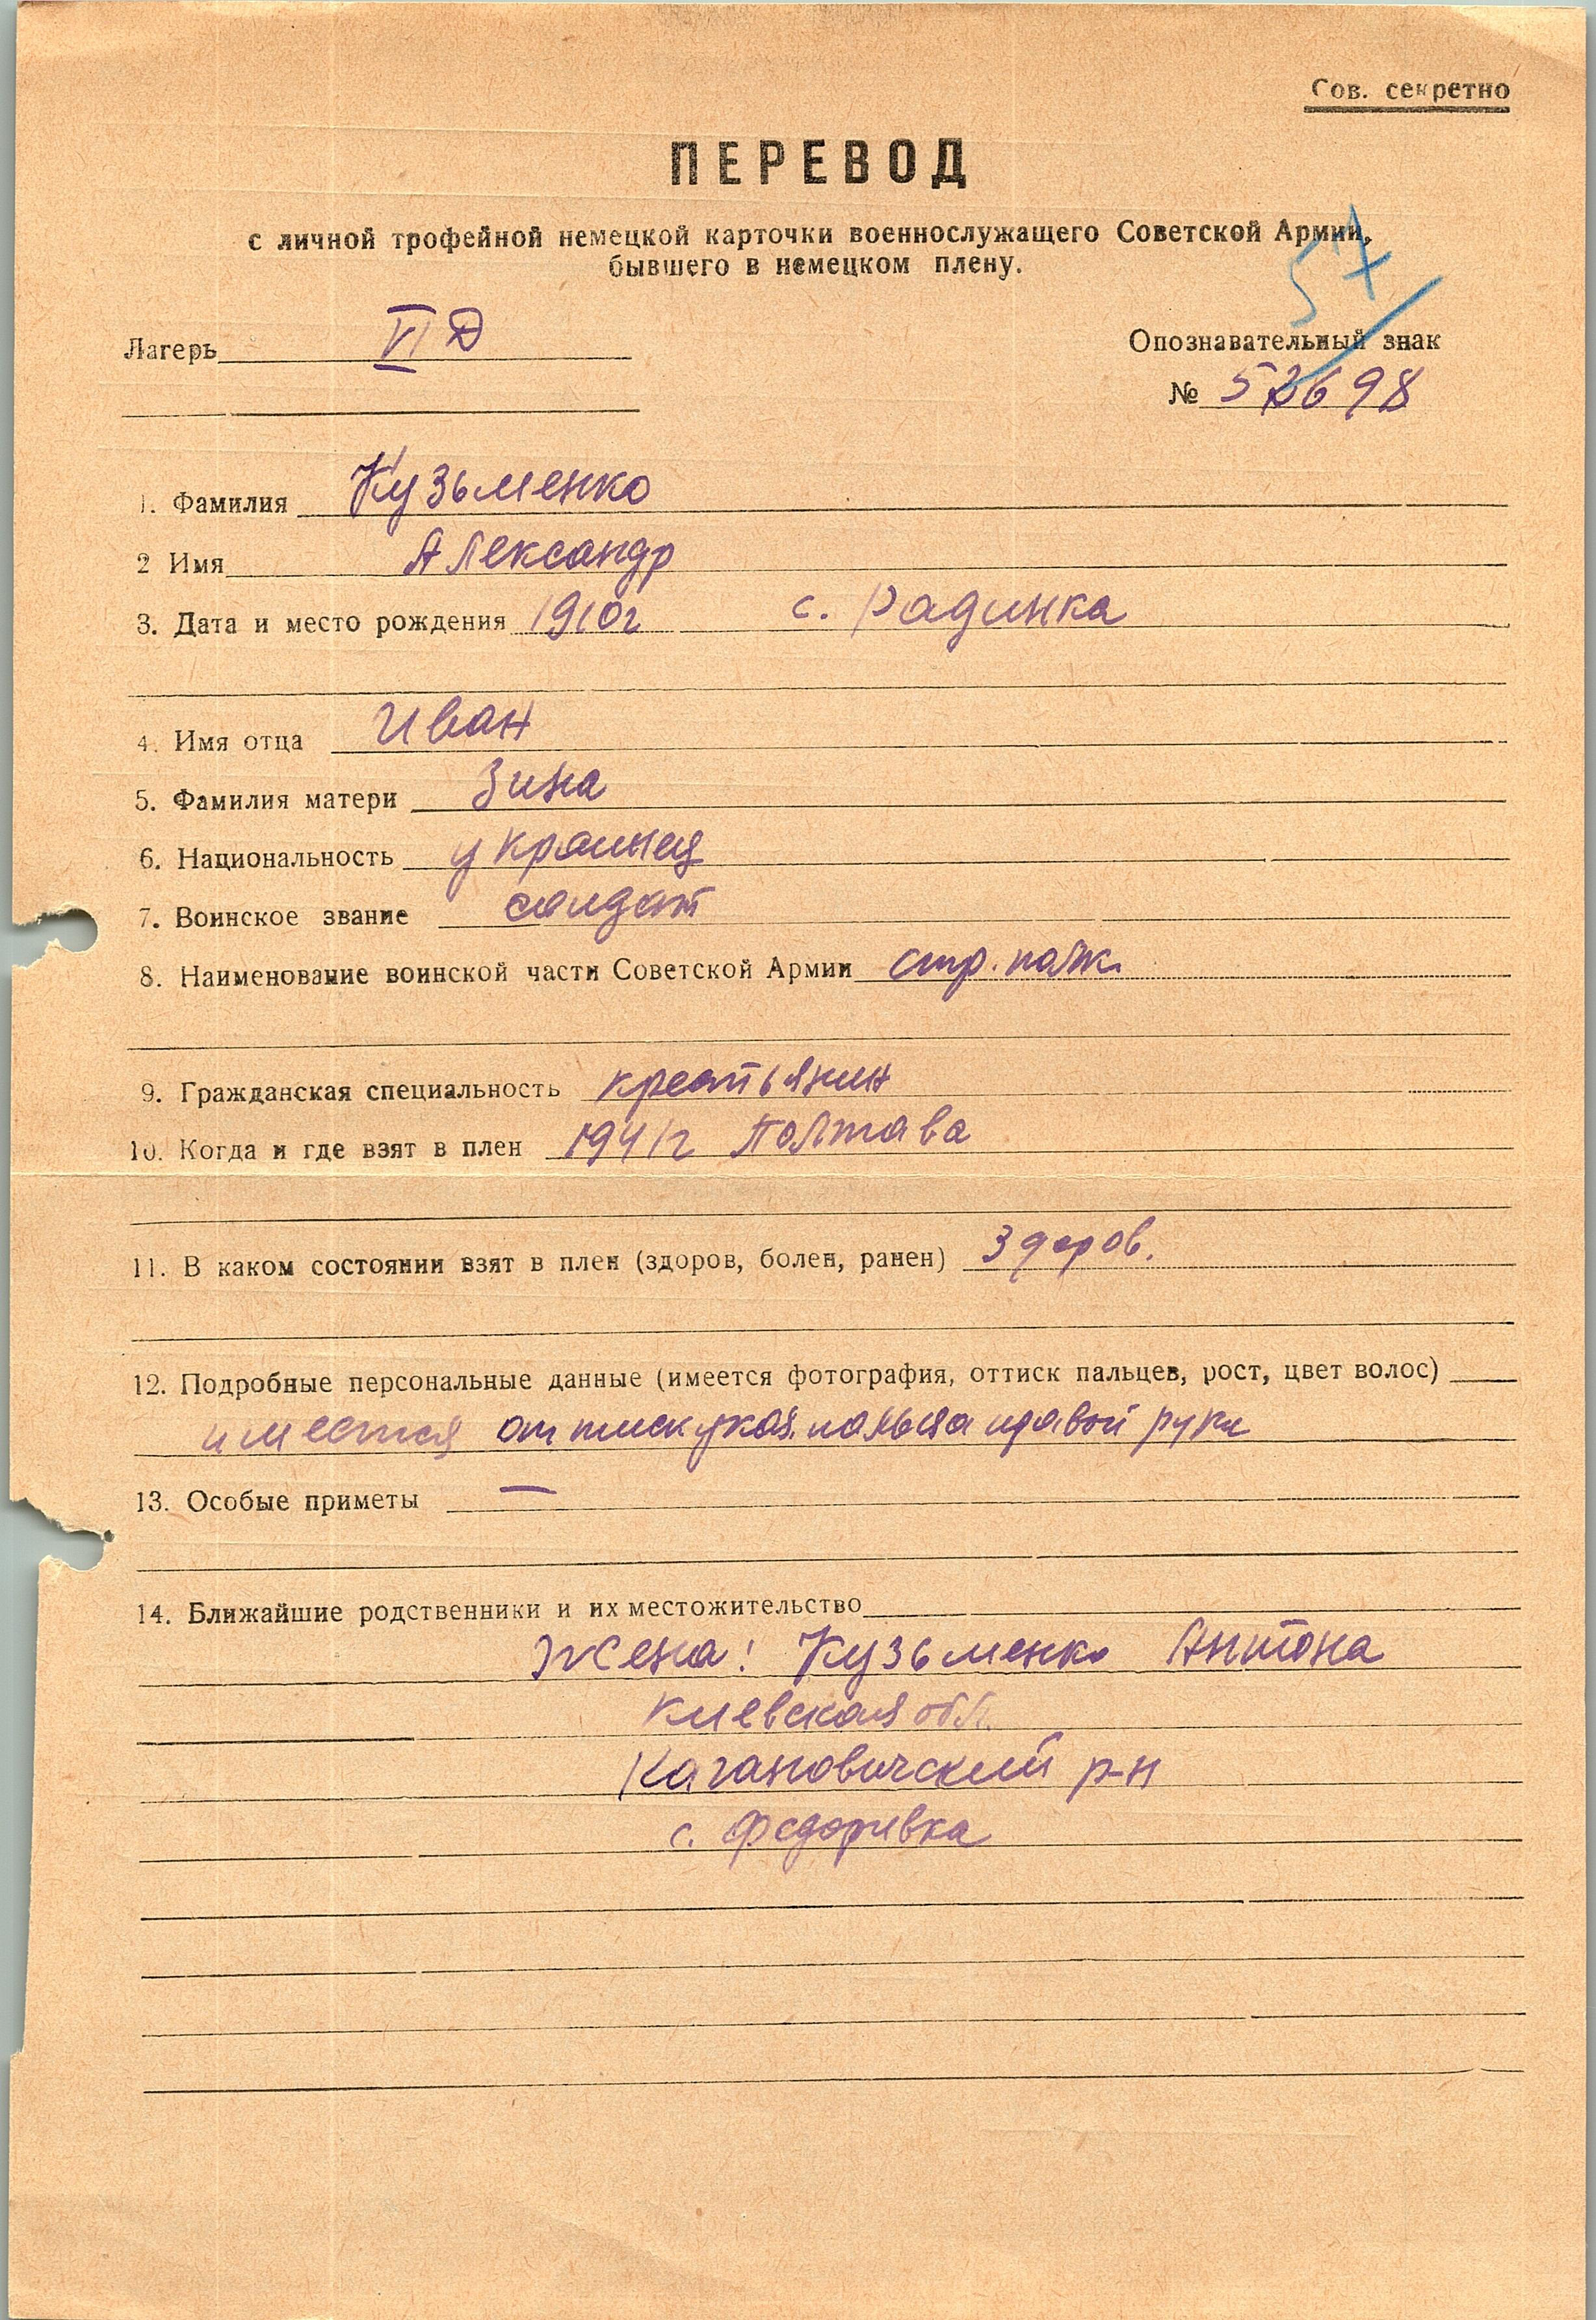 Сов. секретно
ПЕРЕВОД
с личной трофейной немецкой карточки военнослужащего Советской Армии,
бывшего в немецком плену.
Лагерь VI Д
Опознавательный знак
№ 52698
1. Фамилия Кузьменко
2 Имя Александр
3. Дата и место рождения 1910г с. Радинка
4. Имя отца Иван
5. Фамилия матери Зина
6. Национальность украинец
7. Воинское звание солдат
8. Наименование воинской части Советской Армии стр. полк.
9. Гражданская специальность крестьянин
10. Когда и где взят в плен 1941г Полтава
11. В каком состоянии взят в плен (здоров, болен, ранен) здоров.
12. Подробные персональные данные (имеется фотография, оттиск пальцев, рост, цвет волос)
имеется оттиск указ. пальца правой руки
13. Особые приметы —
14. Ближайшие родственники и их местожительство
Жена: Кузьменко Антона
Киевская обл.
Кагановичский р-н
с. Федоривка